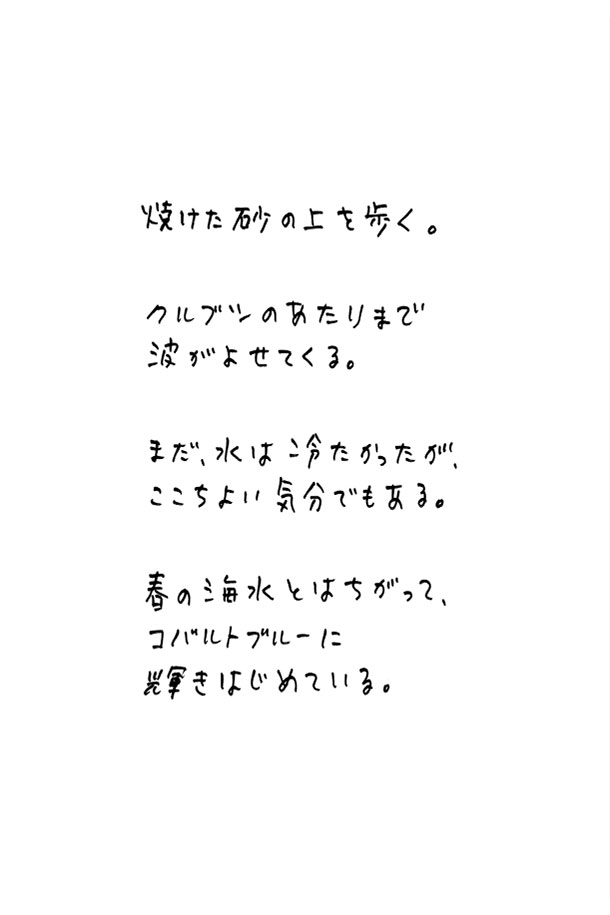 焼けた砂の上を歩く。
クルブシのあたりまで
波がよせてくる。
まだ、水は冷たかったが、
ここちよい気分でもある。
春の海水とはちがって、
コバルトブルーに
輝きはじめている。